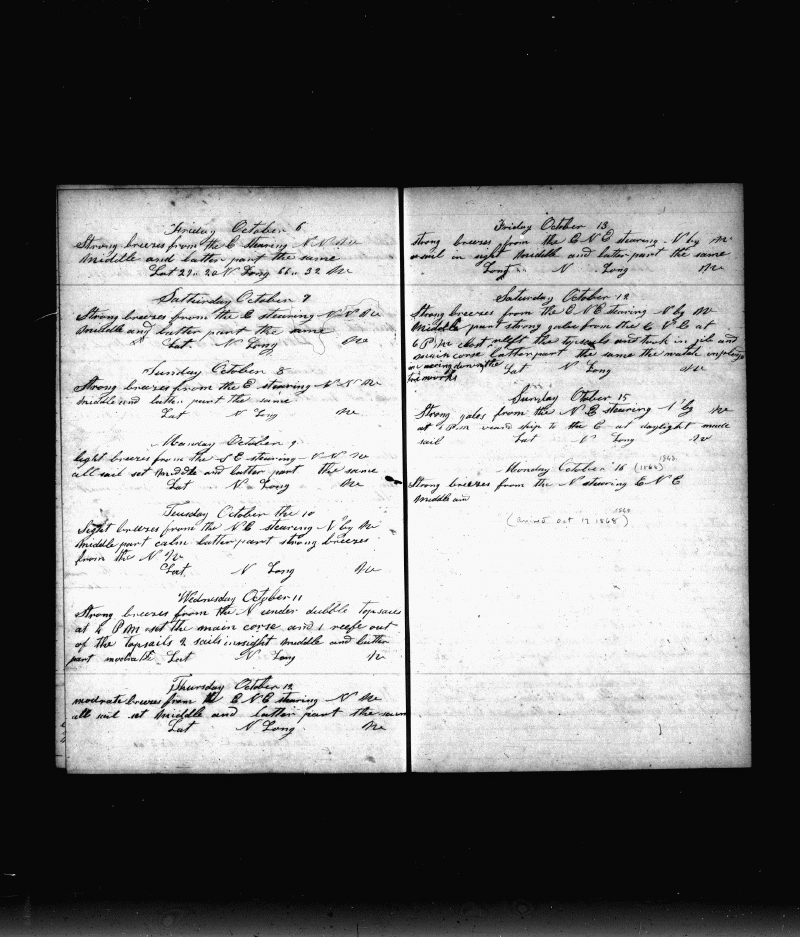 Friday October 6
Strong breezes from the E stearing N N W
middle and latter part the same
Lat 29.. 20 N Long 66.. 32 W
Satturday October 7
Strong breezes from the E stearing N N W
middle and latter part the same
Lat N Long W
Sunday October 8
Strong breezes from the E stearing N N W
middle and latter part the same
Lat N Long W
Monday October 9
light breezes from the S E stearing N N W
all sail set middle and latter part the same
Lat N Long W
Tusday October the 10
light breezes from the N E stearing N by W
middle part calm latter part strong breezes
from the N W
Lat N Long W
Wednesday October 11
Strong breezes from the N under dubble topsails
at 4 P M set the main corse and 1 reefe out
of the topsails 2 sails in sight middle and latter
part modrate Lat N Long W
Thursday October 12
modrate breezes from the E N E stearing N W
all sail set middle and latter part the same
Lat N Long W
Friday October 13
strong breezes from the E N E stearing N by W
a sail in sight middle and latter part the same
Long N Long W
Saturday October 12
Strong breezes from the E N E stearing N by W
middle part strong gales from the E N E at
6 P M close reeft the tysails and took in jib and
main corse latter part the same the watch employed
in the Lat N Long W
fore
Sunday Otober 15
Strong gales from the N E stearing N by W
at P M ship to the E at daylight made
sail Lat N Long W
Monday October 16 (1868) 1863
Strong breezes from the N stearing E N E
middle an
(arrived Oct 17 1868)